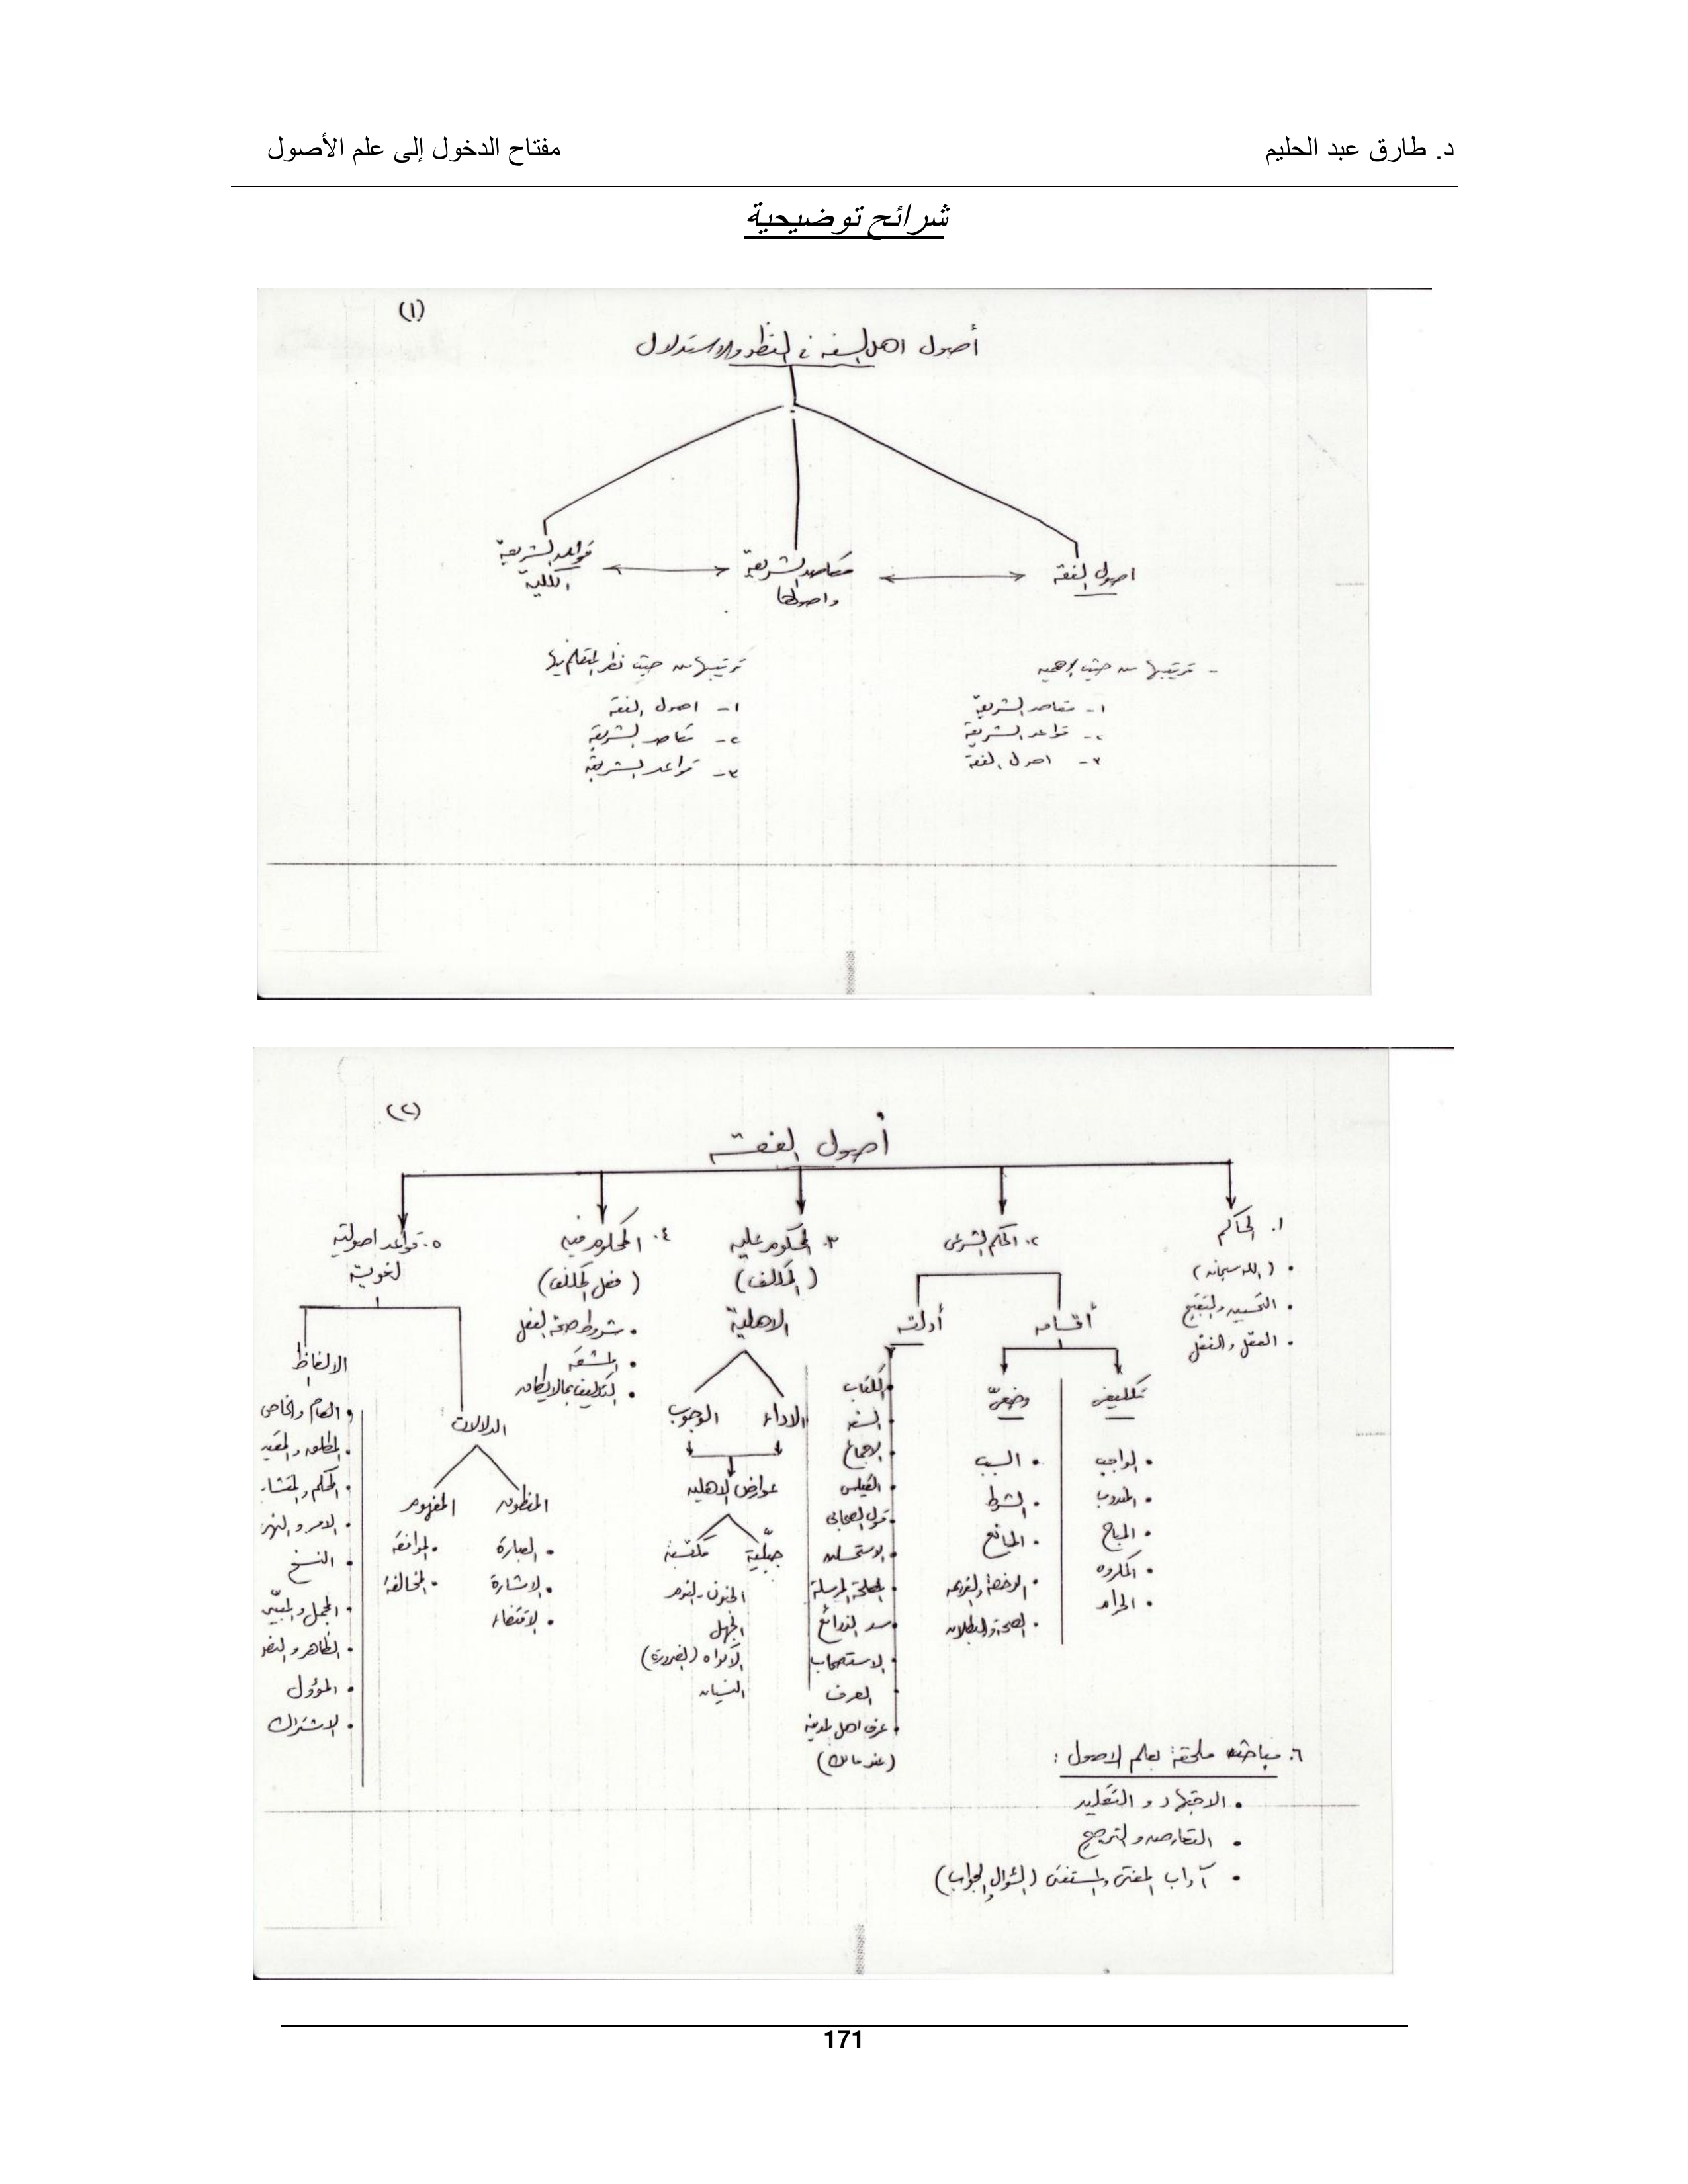 د. طارق عبد الحليم
مفتاح الدخول إلى علم الأصول
شرائح توضيحية
(١)
أصول اهل السنة في النظر والاستدلال
اصول الفقه
مقاصد الشريعة
واصولها
قواعد الشريعة
الكلية
- ترتيبها من حيث الاهميه
١- مقاصد الشريعة
٢- قواعد الشريعة
٣- اصول الفقة
ترتيبها من حيث نظر المتعلم فيها
١- اصول الفقة
٢- مقاصد الشريعة
٣- قواعد الشريعة
(٢)
أصول الفقة
١. الحاكم
• (الله سبحانه)
• التحسين والتقبيح
• العقل والنقل
٢. الحكم الشرعى
أقسامه
تكليفى
• الواجب
• المندوب
• المباح
• المكروه
• الحرام
وضعىّ
• السبب
• الشرط
• المانع
• الرخصة والعزيمه
• الصحة والبطلان
أدلته
• الكتاب
• السنة
• الاجماع
• القياس
• قول الصحابى
• الاستحسان
• المصلحة المرسلة
• سد الذرائع
• الاستصحاب
• العرف
• عرف اهل المدينة
(عند مالك)
٣. المحكوم عليه
(المكلف)
الاهلية
الاداء
الوجوب
عوارض الاهليه
جبلّية
مكتسبة
الجنون - النوم
الجهل
الاكراه (الضرورة)
النسيان
٤. المحكوم فيه
(فعل المكلف)
• شروط صحة الفعل
• المشقة
• التكليف بما لا يطاق
٥. قواعد اصولية
لغوية
الدلالات
المنطوق
• العبارة
• الاشارة
• الاقتضاء
المفهوم
• الموافقة
• المخالفة
الالفاظ
• العام والخاص
• المطلق والمقيد
• المحكم والمتشابـ
• الامر والنهى
• النسخ
• المجمل والمبيّن
• الظاهر والنص
• المؤول
• الاشتراك
٦. مباحث ملحقة بعلم الاصول :
• الاجتهاد و التقليد
• التعارض والترجيح
• آداب المفتى والمستفتى (السؤال والجواب)
171